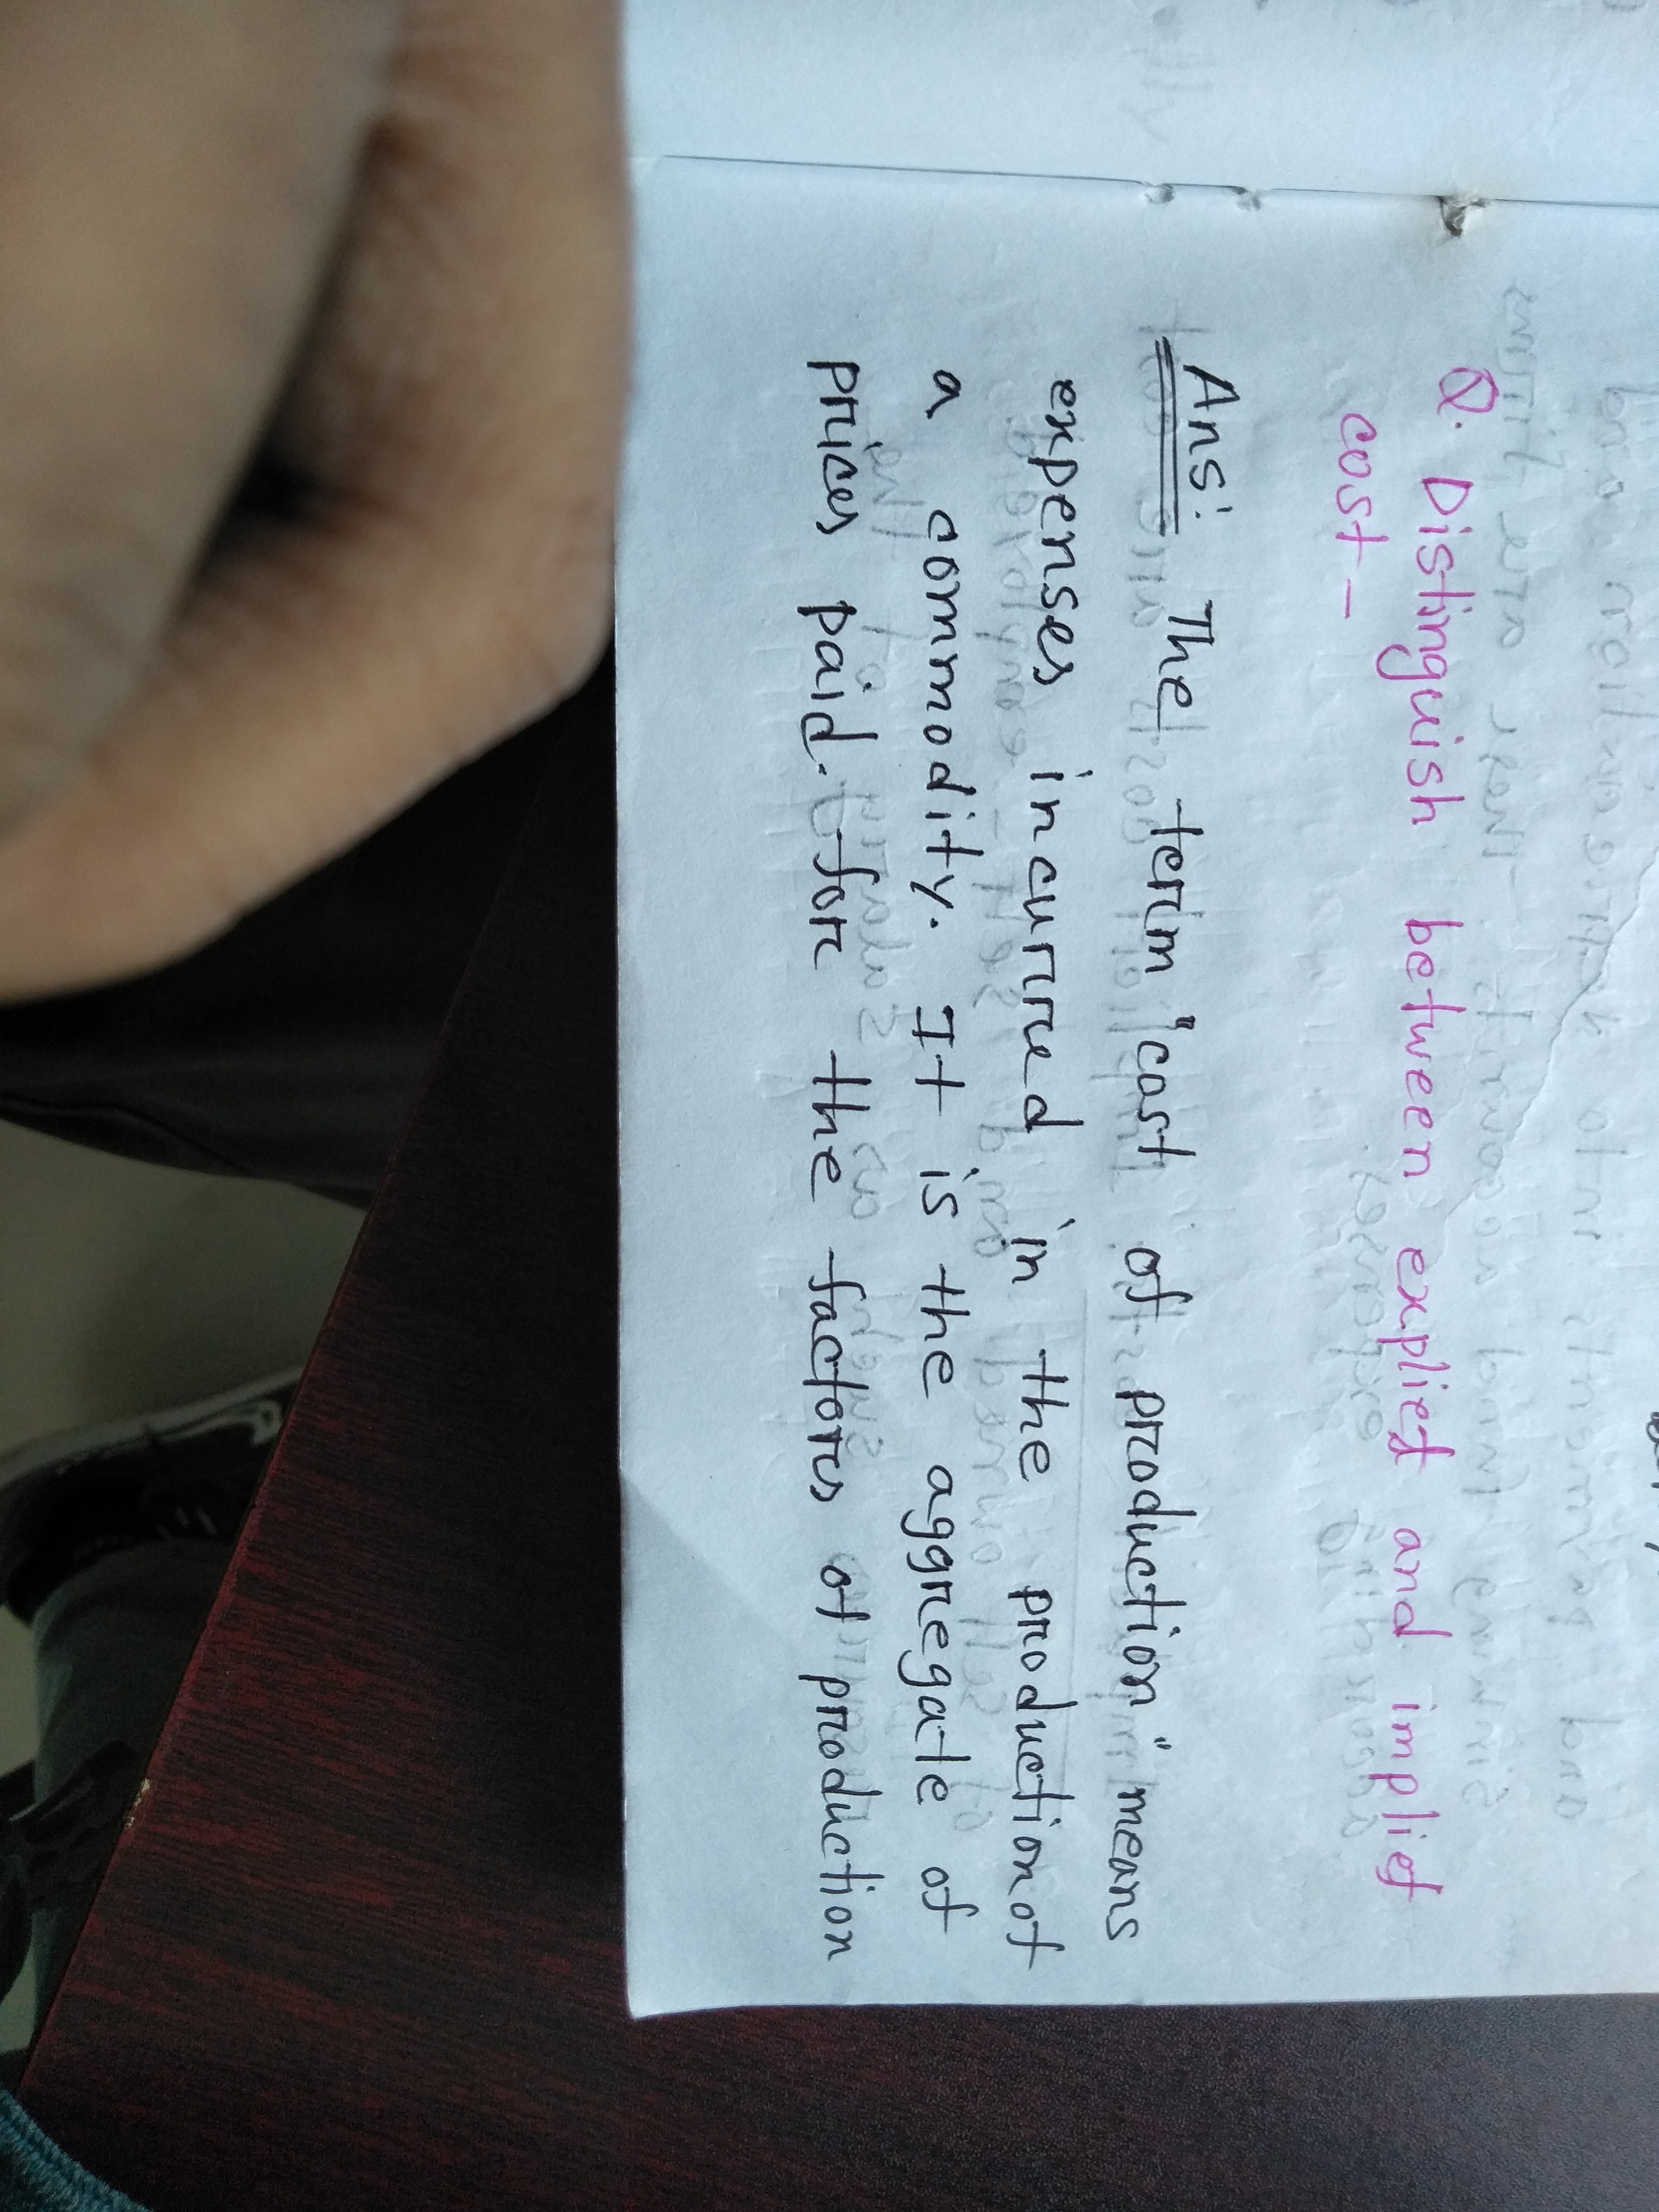 Q. Distinguish between expliet and impliet
cost -
Ans: The term "cost of production" means
expenses incurred in the production of
a commodity. It is the aggregate of
prices paid. for the factors of production